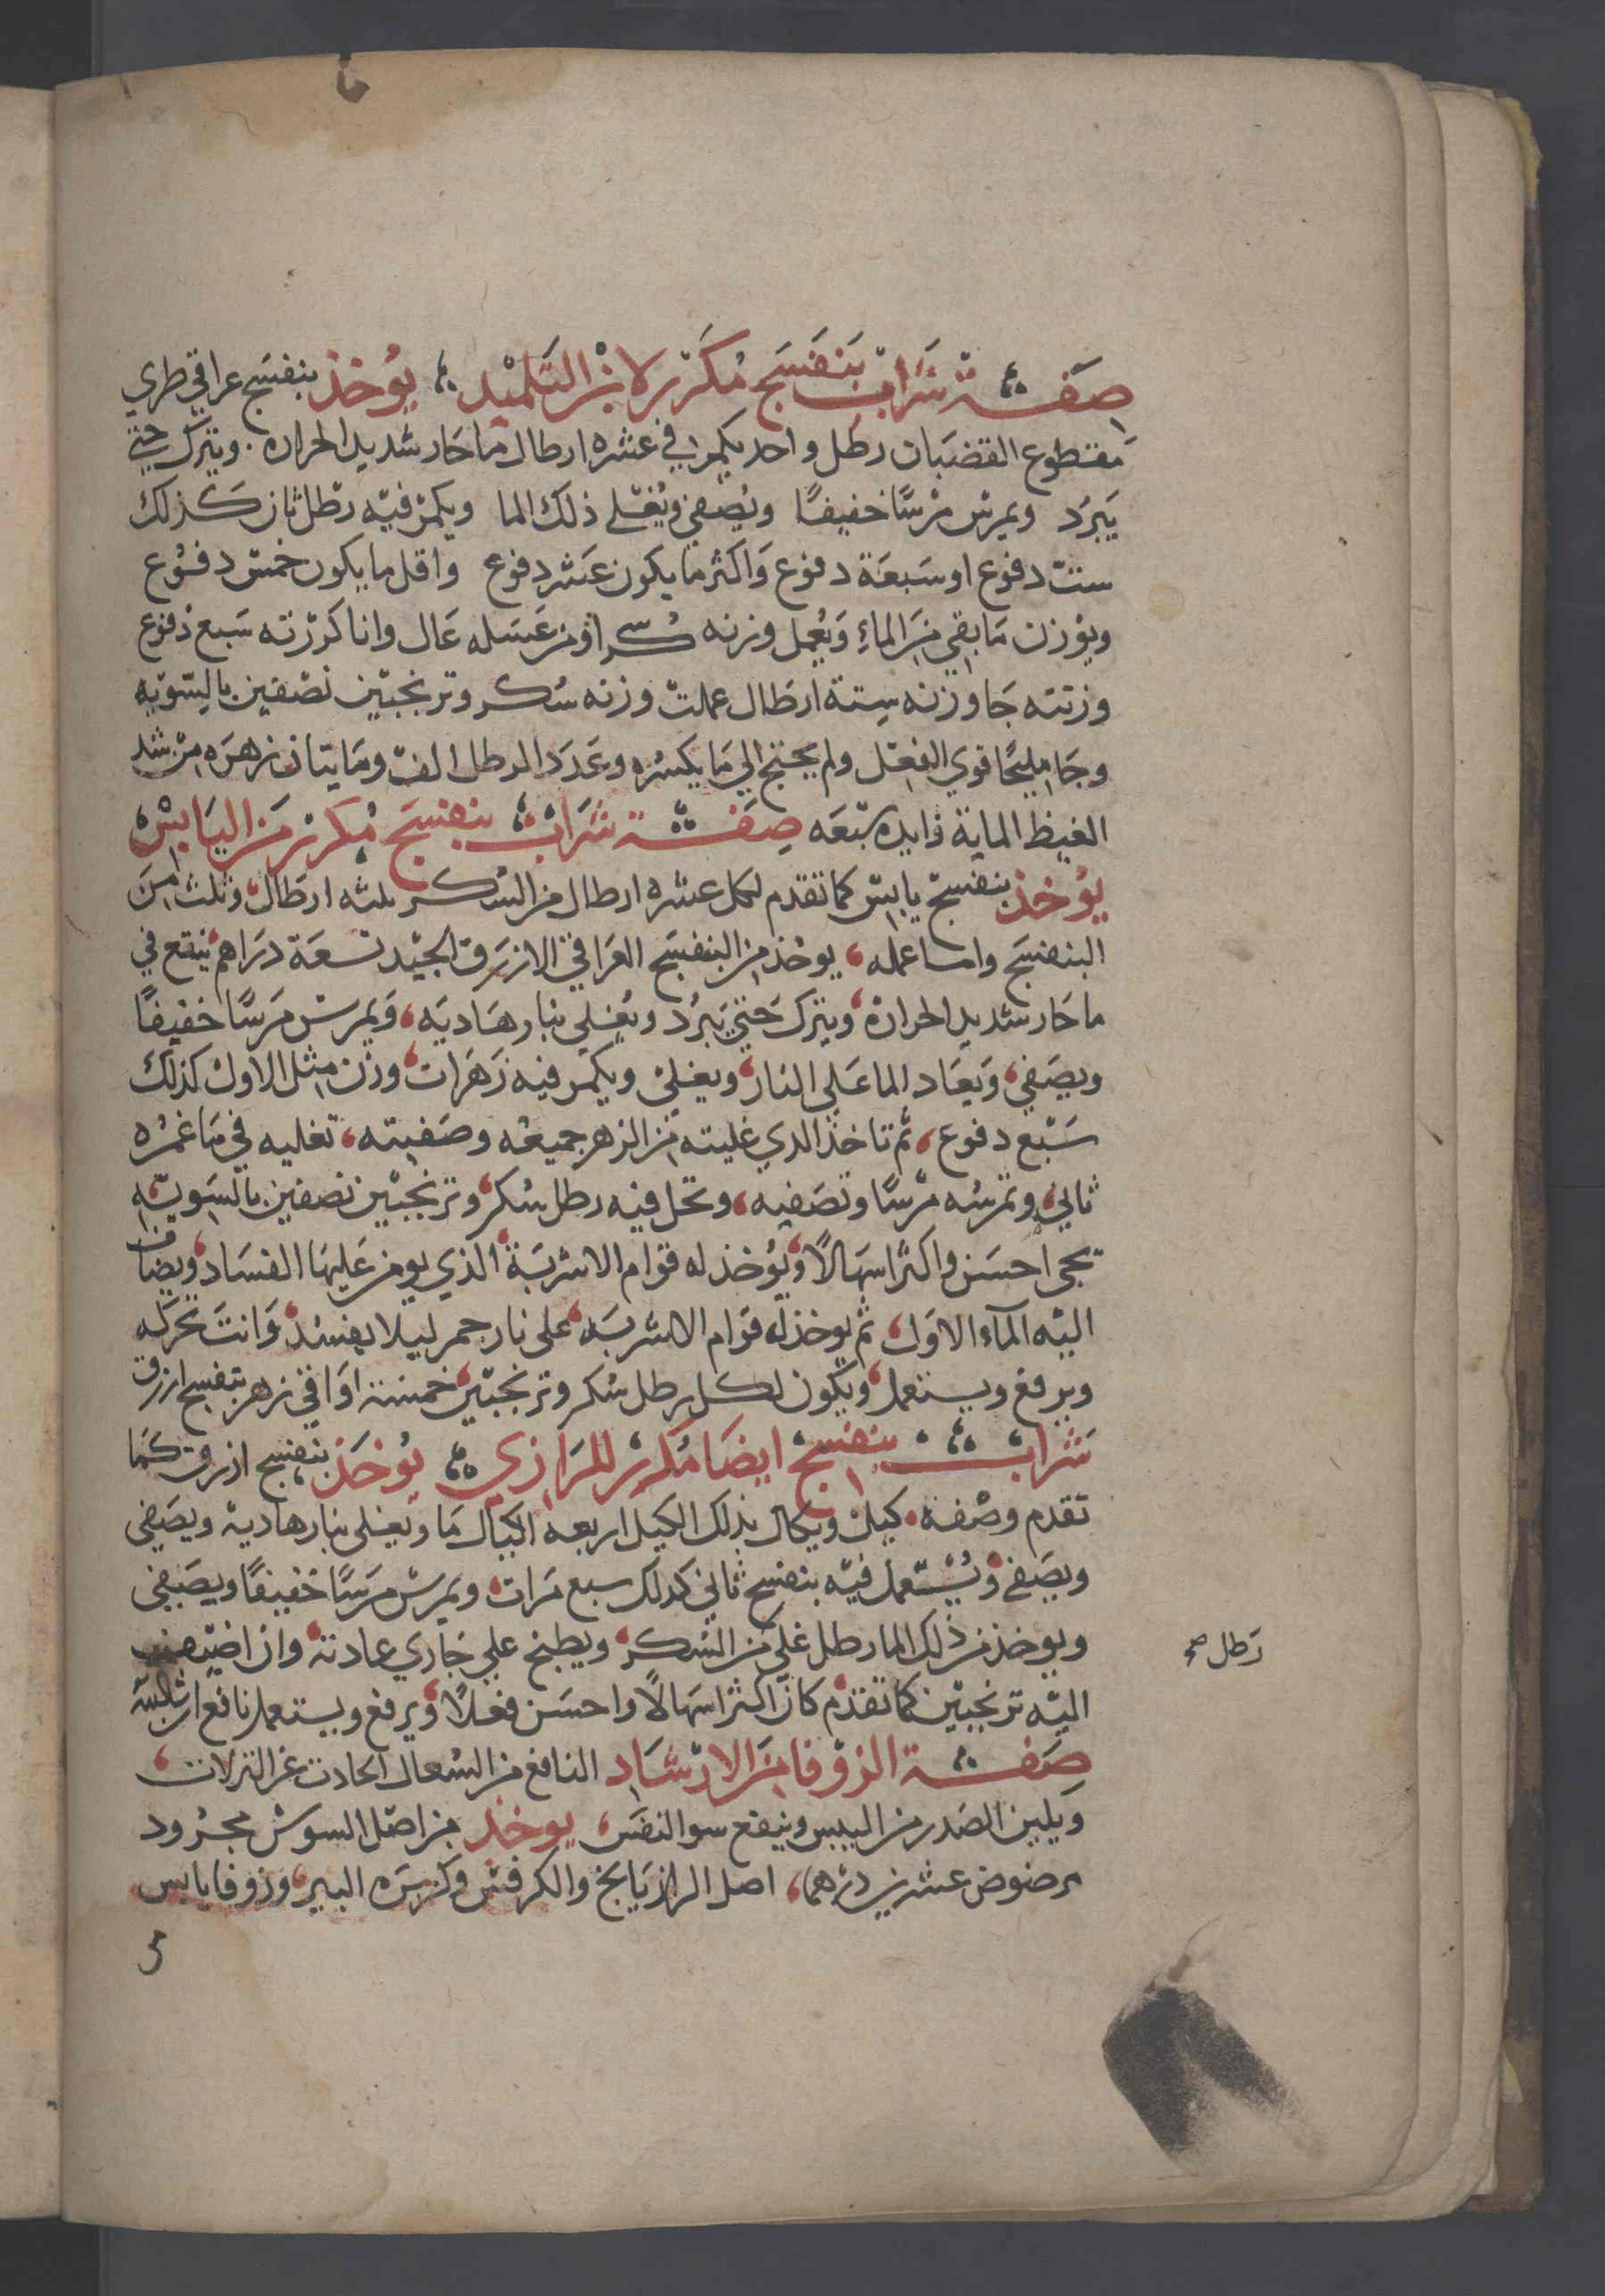 صفة شراب بنفسج مكرر لابن التلميد يوخذ بنفسج عراقي طري
مقطوع القضبان رطل واحد يكمر في عشره ارطال ما حار شديد الحراره ويترك حتى
يبرد ويمرس مرسا خفيفا ويصفي ويغلي ذلك الما ويكمر فيه رطل ثان كذلك
ست دفوع او سبعة دفوع واكثر ما يكون عشر دفوع واقل ما يكون خمس دفوع
ويوزن ما بقي من الماء ويعمل وزنه سكر او من عسله عال وانا كررته سبع دفوع
وزنته جا وزنه ستة ارطال عملت وزنه سكر وترنجبين نصفين بالسويه
وجا مليحا قوي الفعل ولم يحتج الي ما يكسره وعدد الرطل الف ومايتان زهره من شد
الغيظ الماية زايده سبعه صفة شراب بنفسج مكرر من اليابس
يوخذ بنفسج يابس كما تقدم لكل عشره ارطال من السكر ثلثه ارطال وثلث من
البنفسج واما عمله يوخذ من البنفسج العراقي الازرق الجيد تسعة دراهم ينقع في
ما حار شديد الحرارة ويترك حتي يبرد ويغلي بنار هاديه ويمرس مرسا خفيفا
ويصفي ويعاد الما علي النار ويغلي ويكمر فيه زهرات وزن مثل الاول كذلك
سبع دفوع ثم تاخذ الدي غليته من الزهر جميعه وصفيته تغليه في ما غمره
ثاني وتمرسه مرسا وتصفيه وتحل فيه رطل سكر وترنجبين نصفين بالسويه
تجي احسن واكثر اسهالا ويوخذ له قوام الاشربة الذي يومن عليها الفساد ويضاف
اليه المآء الاول ثم يوخذ له قوام الاشربه على نار جمر ليلا يفسد وانت تحركه
ويرفع ويستعمل ويكون لكل رطل سكر وترنجبين خمسة اواقي زهر بنفسج ازرق
شراب بنفسج ايضا مكرر للرازي يوخذ بنفسج ازرق كما
تقدم وصفه كيل ويكال بذلك الكيل اربعه اكيال ما ويغلى بنار هادية ويصفي
ويصفي ويستعمل فيه بنفسج ثاني كدلك سبع مرات ويمرس مرسا خفيفا ويصفي
ويوخذ من ذلك الما رطل غلي من السكر ويطبخ علي جاري عادته وان اضيف
اليه ترنجبين كما تقدم كان اكثر اسهالا واحسن فعلا ويرفع ويستعمل نافع ان شا الله
صفة الزوفا من الارشاد النافع من السعال الحادث عن النزلات
ويلين الصدر من اليبس وينفع سو النفس يوخذ من اصل السوس مجرود
مرضوض عشرين درهما اصل الرازيانج والكرفس وكزبره البير وزوفا يابس
رطل صح